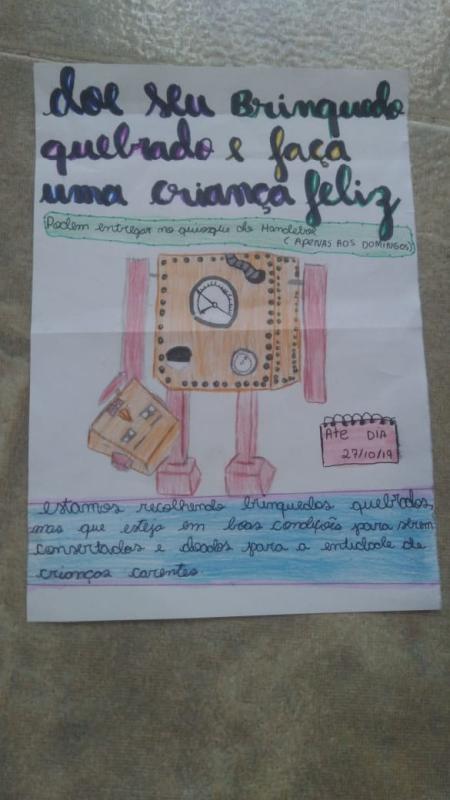 doe seu Brinquedo
quebrado e faça
uma criança feliz
Podem entregar no quiosque do Handebol
(APENAS AOS DOMINGOS)
Ate DIA
27/10/19
estamos recolhendo brinquedos quebrados,
mas que esteja em boas condições para serem
consertados e doados para a entidade de
crianças carentes.